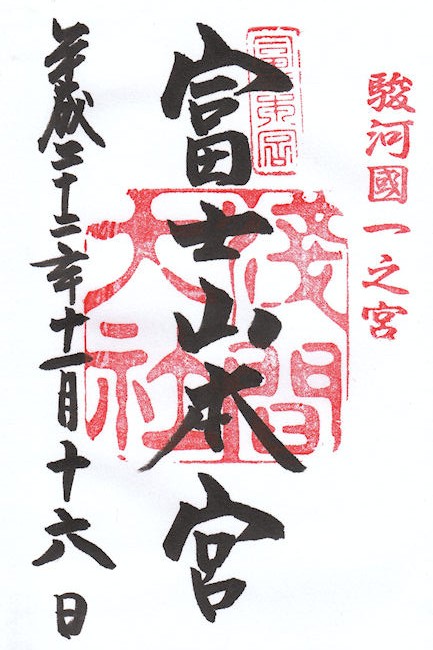 駿河國一之宮
富士山本宮
淺間
大社
平成二十二年十一月十六日